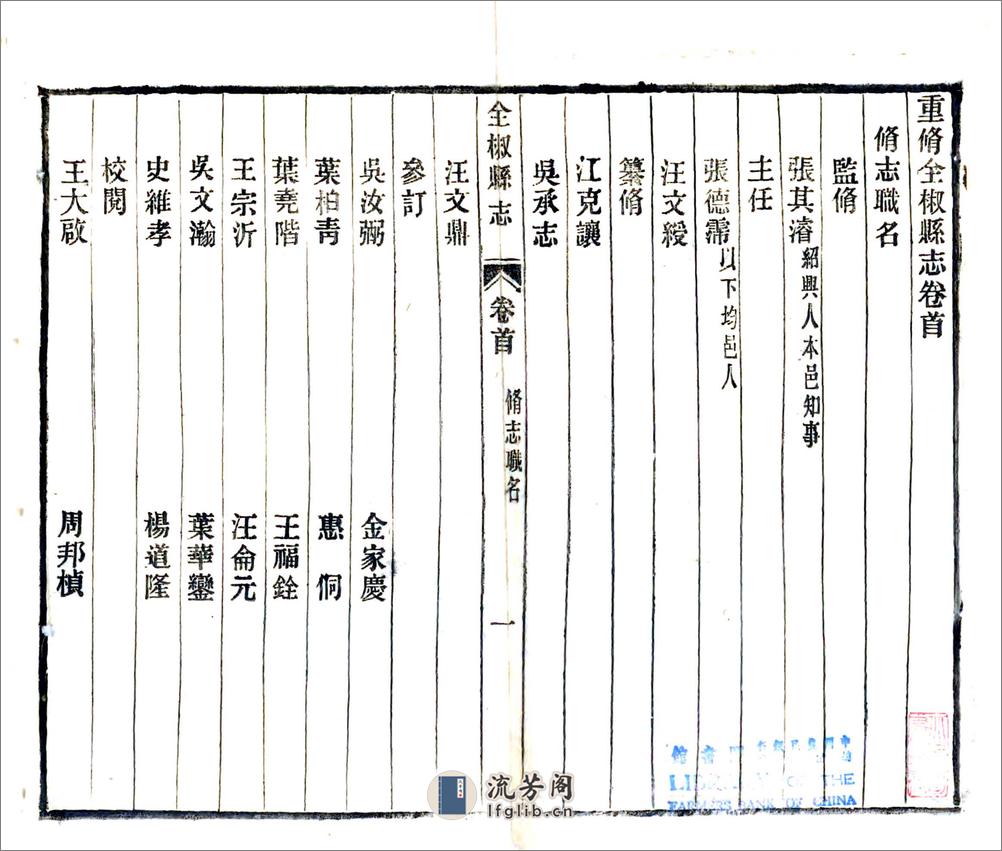 重脩全椒縣志卷首
脩志職名
監脩
張其濬紹興人本邑知事
主任
張德霈以下均邑人
汪文綬
纂脩
江克讓
吳承志
全椒縣志 卷首 脩志職名 一
汪文鼎
參訂
吳汝弼 金家慶
葉柏青 惠侗
葉堯階 王福銓
王宗沂 汪侖元
吳文瀚 葉華鑾
史維孝 楊道隆
校閱
王大啟 周邦楨
LIBRARY OF THE
FARMERS BANK OF CHINA
流芳阁
lfglib.cn